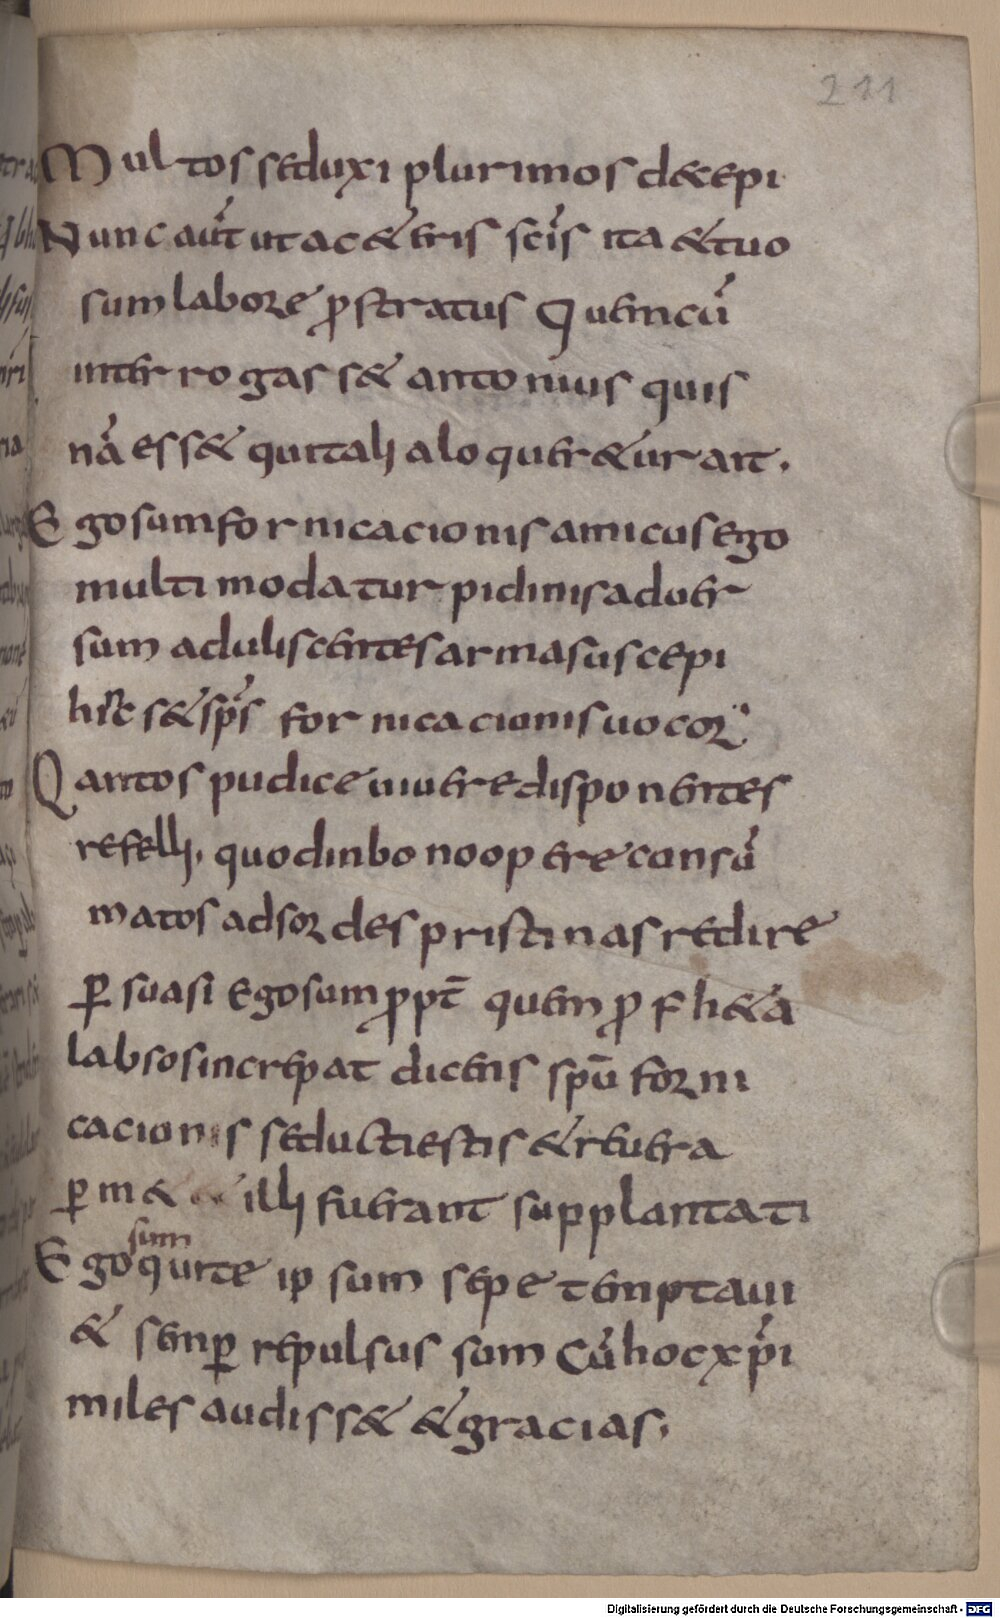 211
Multos seduxi plurimos d&cepi
Nunc aut̄ ut ac &eris sc̄is ita &tuo
sum labore p̲stratus Quem cū
interrogas s& antonius quis
nā ess& qui tali aloquer&ur ait.
Ego sum fornicacionis amicus ego
multimoda turpidinis aduer
sum aduliscentes arma suscepi
hinc s& sp̄s fornicacionis uocor
Qantos pudice uiuere disponentes
refelli, quod inbono opere consū
matos ad sordes pristinas redire
p̲ suasi Ego sum p̲pt̄ quem p̲fh&a
labsos increpat dicens spū forni
cacionis seducti estis & reuera
p̲ m& illi fuerant supplantati
sum
Ego qui te ip̲sum sepe temptaui
& semp̲ repulsus sum Cū hoc xp̄i
miles audiss& & gracias.
Digitalisierung gefördert durch die Deutsche Forschungsgemeinschaft - DFG